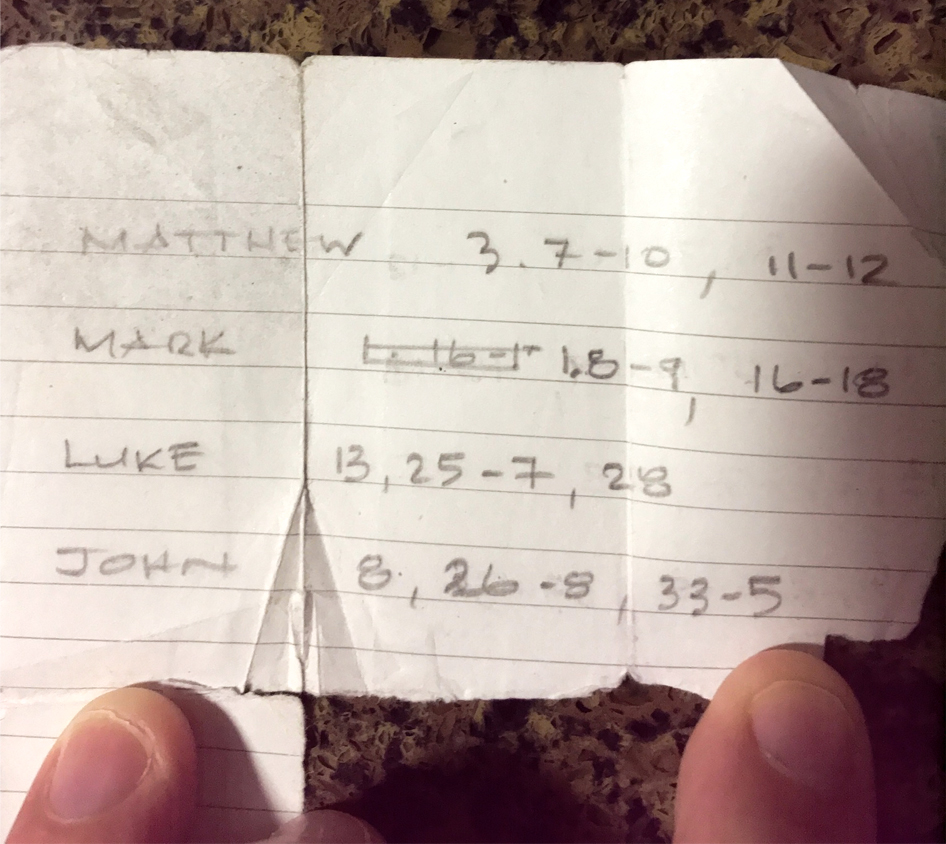 MATTHEW 3. 7-10, 11-12
MARK 1.8-9, 16-18
LUKE 13, 25-7, 28
JOHN 8, 26-8, 33-5